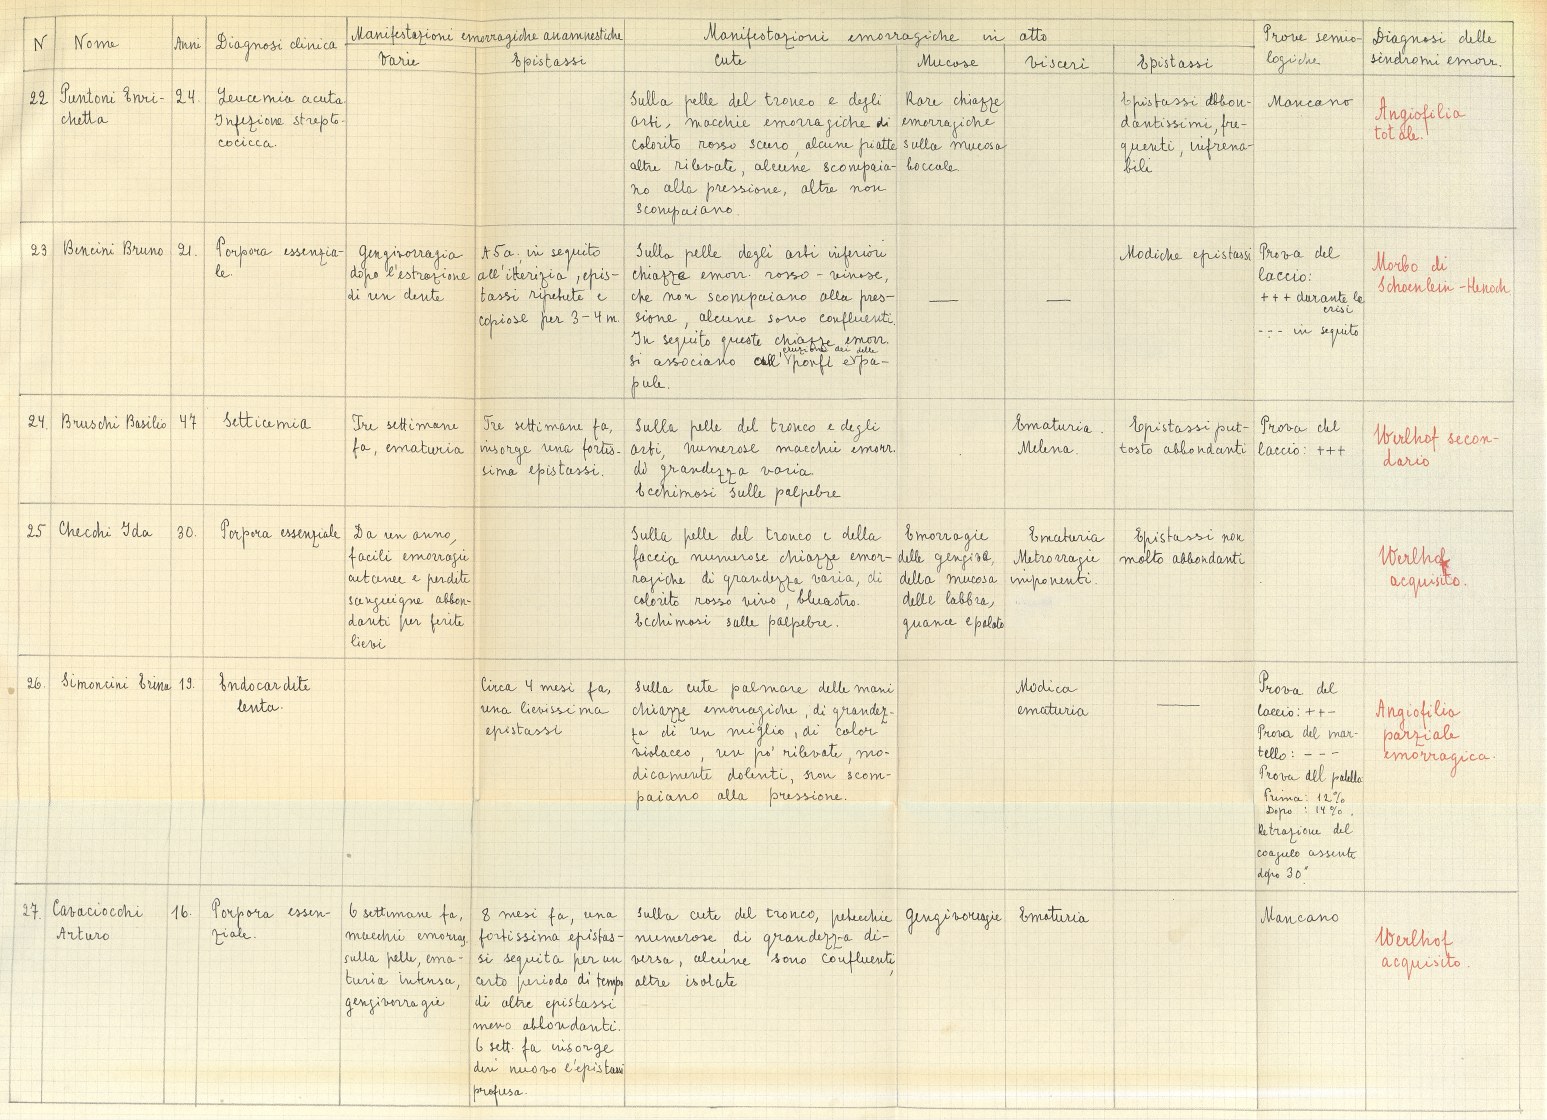 N
Nome
Anni
Diagnosi clinica
Manifestazioni emorragiche anamnestiche
Varie
Epistassi
Manifestazioni emorragiche in atto
Cute
Mucose
Visceri
Epistassi
Prove semio-
logiche
Diagnosi delle
sindromi emorr.
22
Puntoni Enri-
chetta
24.
Leucemia acuta
Infezione strepto-
cocicca.
Sulla pelle del tronco e degli
arti, macchie emorragiche di
colorito rosso scuro, alcune piatte
altre rilevate, alcune scompaia-
no alla pressione, altre non
scompaiano.
Rare chiazze
emorragiche
sulla mucosa
boccale
Epistassi abbon-
dantissimi, fre-
quenti, infrena-
bili
Mancano
Angiofilia
totale.
23
Bencini Bruno
21.
Porpora essenzia-
le.
Gengivorragia
dopo l'estrazione
di un dente
A 5a, in seguito
all'itterizia, epis-
tassi ripetute e
copiose per 3-4 m.
Sulla pelle degli arti inferiori
chiazze emorr. rosso-vinose,
che non scompaiano alla pres-
sione, alcune sono confluenti.
In seguito queste chiazze emorr.
eruzione dei delle
si associano all' ponfi e pa-
pule.
—
—
Modiche epistassi
Prova del
laccio:
+++ durante le
crisi
--- in seguito
Morbo di
Schoenlein-Henoch
24.
Bruschi Basilio
47
Setticemia
Tre settimane
fa, ematuria
Tre settimane fa,
insorge una fortis-
sima epistassi.
Sulla pelle del tronco e degli
arti, numerose macchie emorr.
di grandezza varia.
Ecchimosi sulle palpebre
Ematuria.
Melena.
Epistassi put-
tosto abbondanti
Prova del
laccio: +++
Werlhof secon-
dario
25
Checchi Ida
30.
Porpora essenziale
Da un anno,
facili emorragie
cutanee e perdite
sanguigne abbon-
danti per ferite
lievi
Sulla pelle del tronco e della
faccia numerose chiazze emor-
ragiche di grandezza varia, di
colorito rosso vivo, bluastro.
Ecchimosi sulle palpebre.
Emorragie
delle gengive,
della mucosa
delle labbra,
guance e palato
Ematuria
Metrorragie
imponenti.
Epistassi non
molto abbondanti
Werlhof
acquisito.
26.
Simoncini Erina
19.
Endocardite
lenta.
Circa 4 mesi fa,
una lievissima
epistassi
Sulla cute palmare delle mani
chiazze emorragiche, di grandez-
za di un miglio, di color
violaceo, un po' rilevate, mo-
dicamente dolenti, non scom-
paiano alla pressione.
Modica
ematuria
—
Prova del
laccio: ++-
Prova del mar-
tello: - - -
Prova dell patella
Prima: 12%
Dopo: 14%.
Retrazione del
coagulo assente
dopo 30'
Angiofilia
parziale
emorragica.
27.
Cavaciocchi
Arturo
16.
Porpora essen-
ziale.
6 settimane fa,
macchie emorrag.
sulla pelle, ema-
turia intensa,
gengivorragie
8 mesi fa, una
fortissima epistas-
si seguita per un
certo periodo di tempo
di altre epistassi
meno abbondanti.
6 sett. fa insorge
di nuovo l'epistassi
profusa.
Sulla cute del tronco, petecchie
numerose di grandezza di-
versa, alcune sono confluenti,
altre isolate
Gengivorragie
Ematuria
Mancano
Werlhof
acquisito.